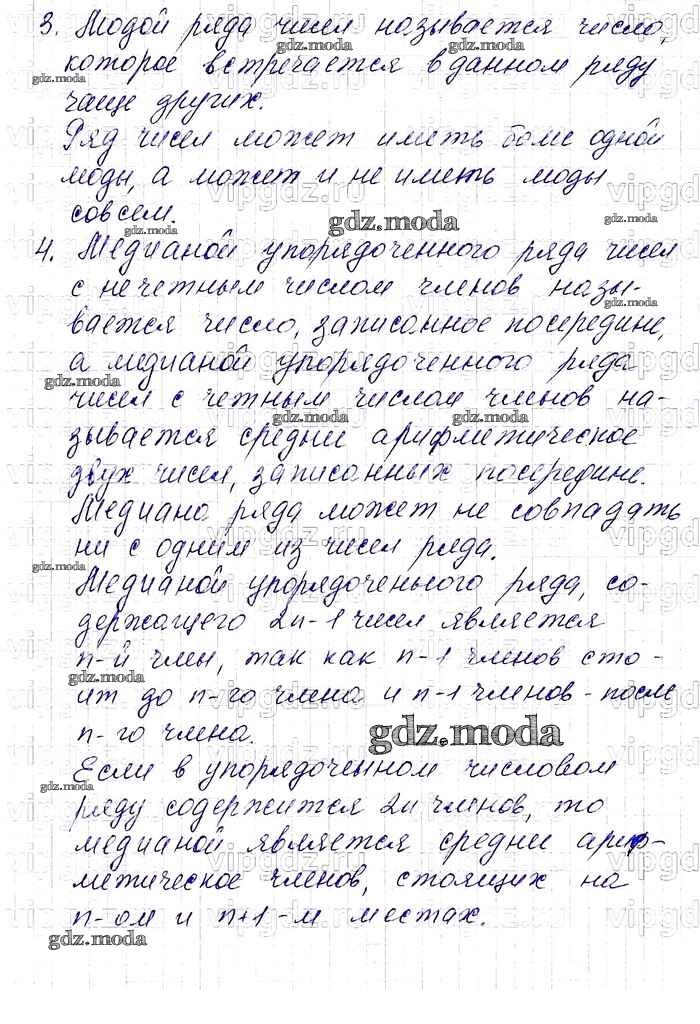 3. Модой ряда чисел называется число,
gdz.moda gdz.moda
которое встречается в данном ряду
чаще других.
gdz.moda
Ряд чисел может иметь боле одной
моды, а может и не иметь моды
vipgdz.ru
совсем.
gdz.moda gdz.moda
gdz.moda
4. Медианой упорядоченного ряда чисел
с нечетным числом членов назы-
gdz.moda
вается число, записанное посередине,
а медианой упорядоченного ряда
gdz.moda
чисел с четным числом членов на-
gdz.moda gdz.moda
зывается средние арифметическое
двух чисел, записанных посередине.
Медиана ряда может не совпадать
ни с одним из чисел ряда.
gdz.moda
Медианой упорядоченього ряда, со-
держащего 2n-1 чисел является
n-й члены, так как n-1 членов сто-
gdz.moda
ит до n-го члена и n-1 членов - после
n-го члена.
gdz.moda
Если в упорядоченном числовом
gdz.moda
ряду содержится 2n членов, то
медианой является средние ариф-
метическое членов, стоящих на
n-ом и n+1-м местах.
gdz.moda